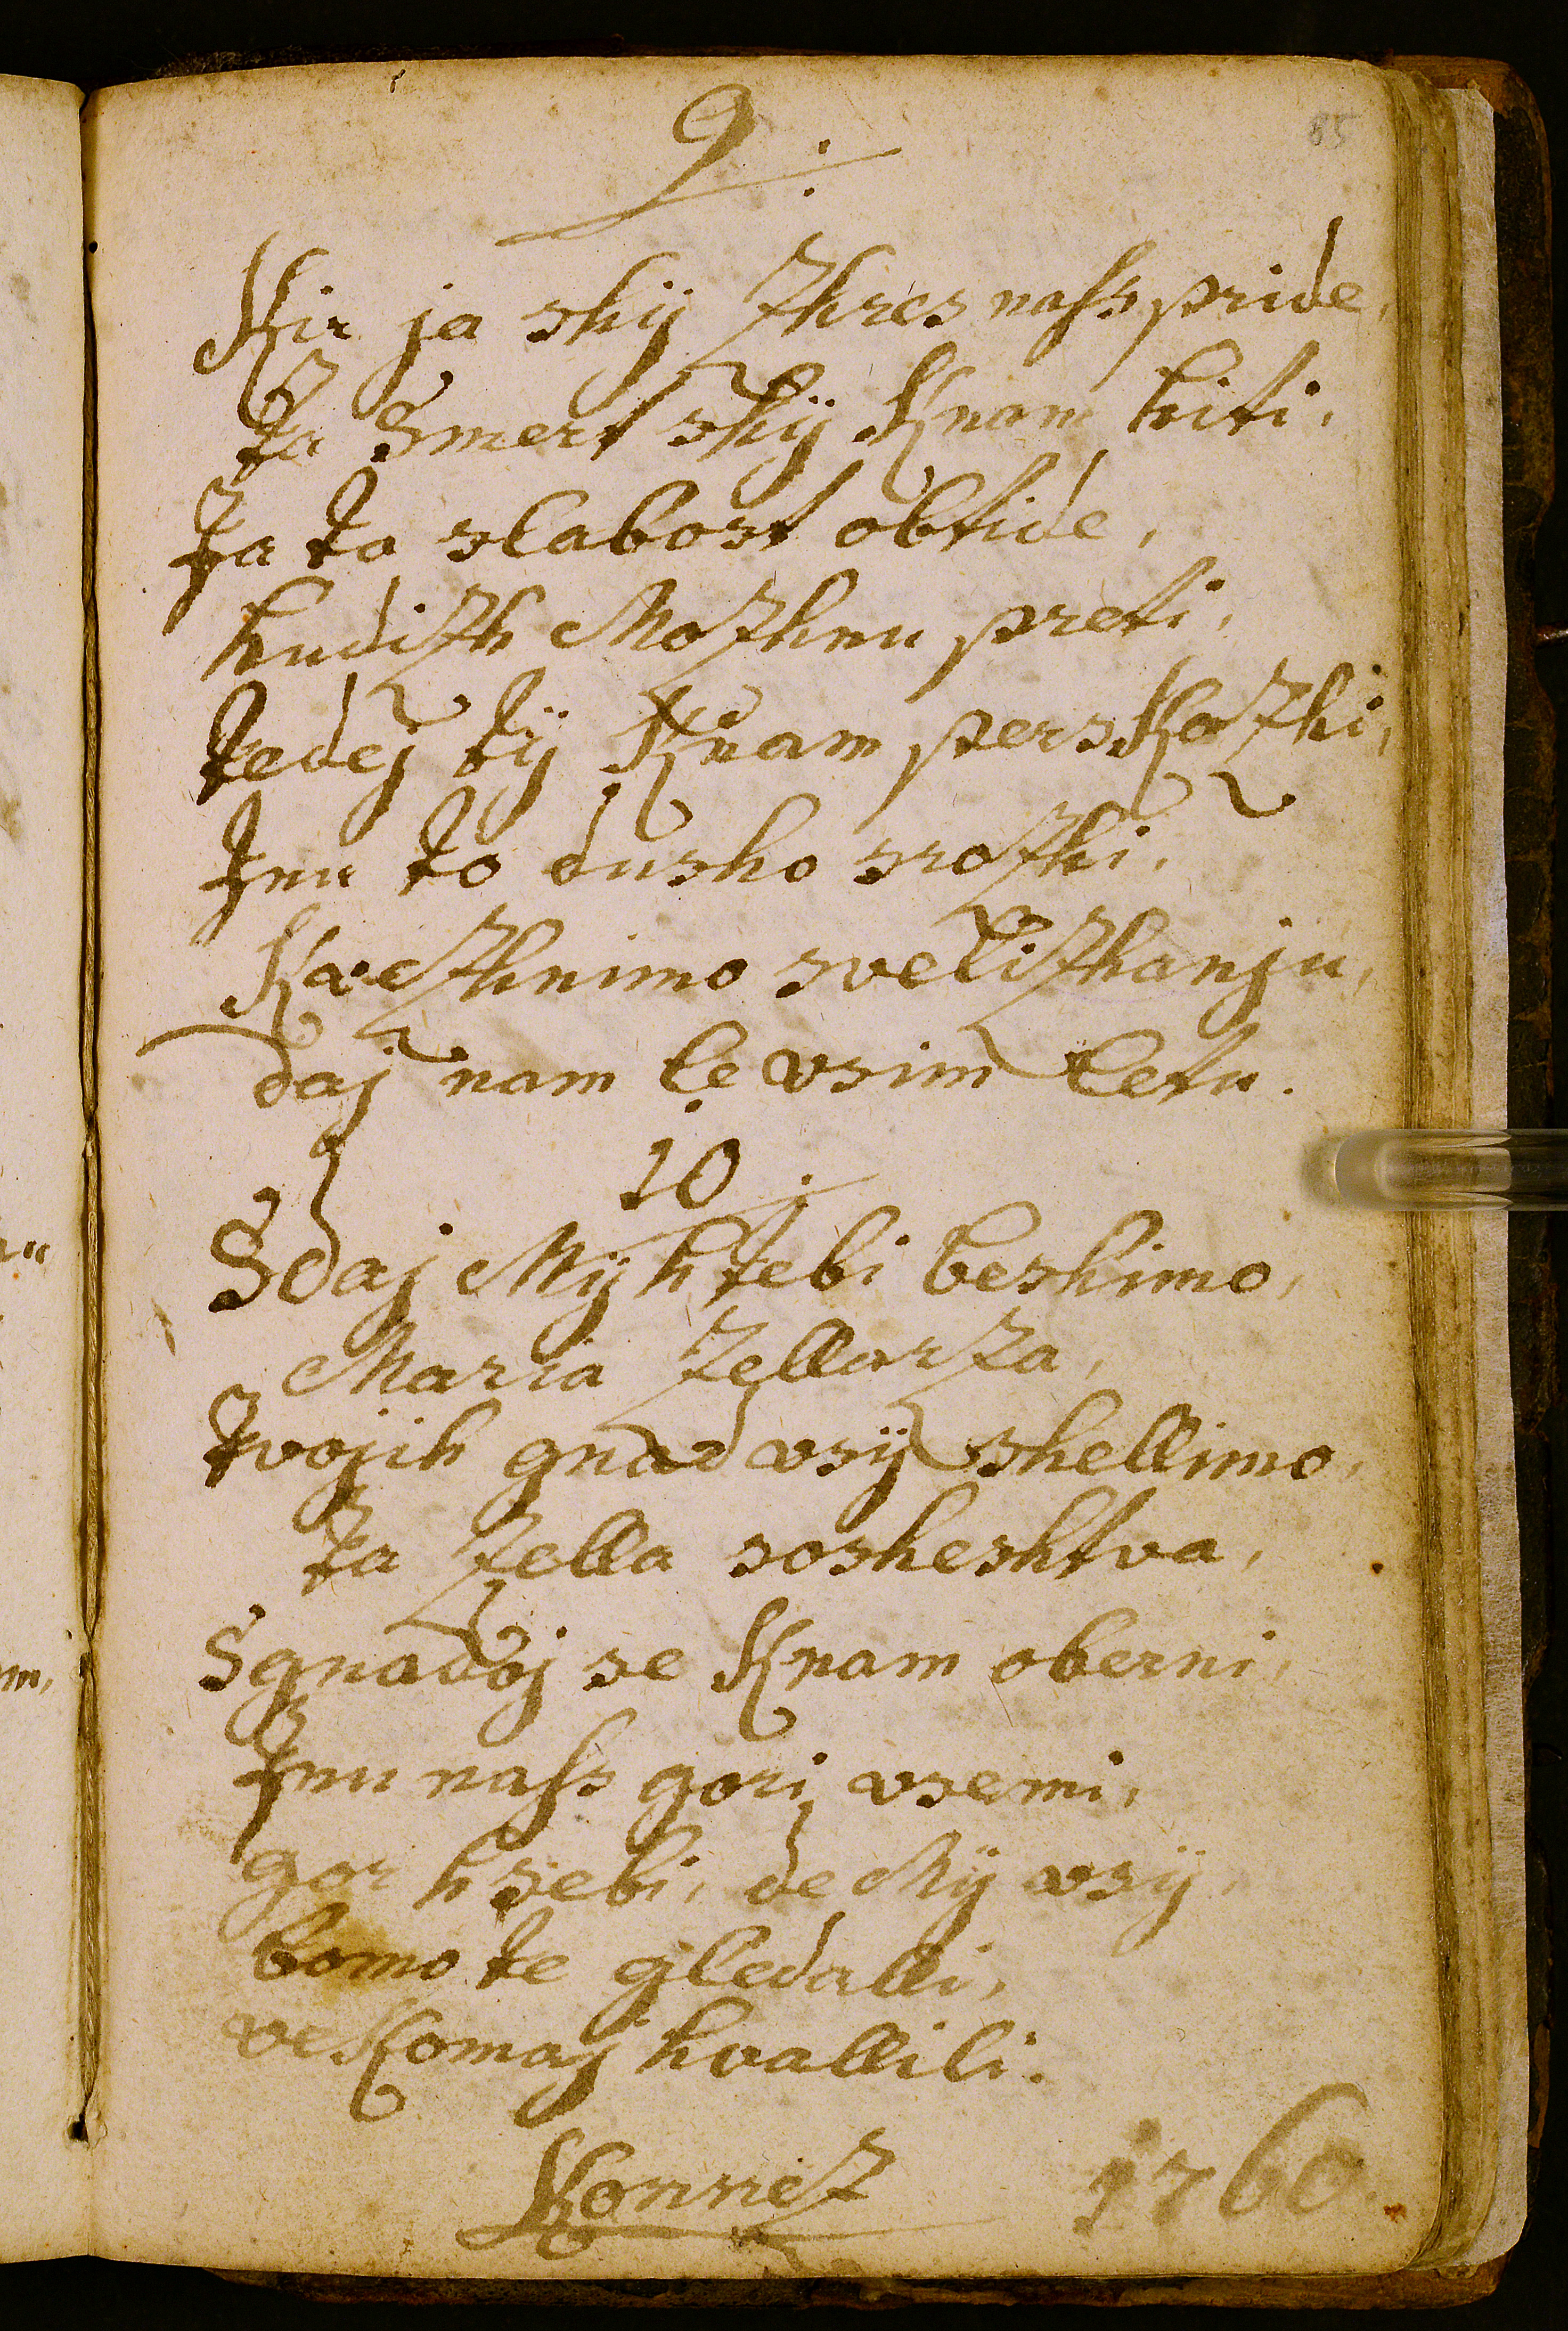 85
9.
Kir ja skij zhres nass pride,
ta Smert skij Knam hiti,
Ja ta slabost obtide,
hudizh Mozhnu preti,
tedej tij Knam perskozhi,
Inu to dusho srozhi,
Kaczhnimo svelizhanju,
daj nam le vsim letu.
10.
Sdaj Mij h tebi beshimo,
Maria Zellarza,
tvojih gnad vsij shellimo,
ta Zella sosheshtva,
Sgnadoj se Knam oberni,
Inu nass gori vsemi,
gor h sebi, de Mij vsij
bomo te gledalli,
veKomaj hvallili.
Konnez 1760.